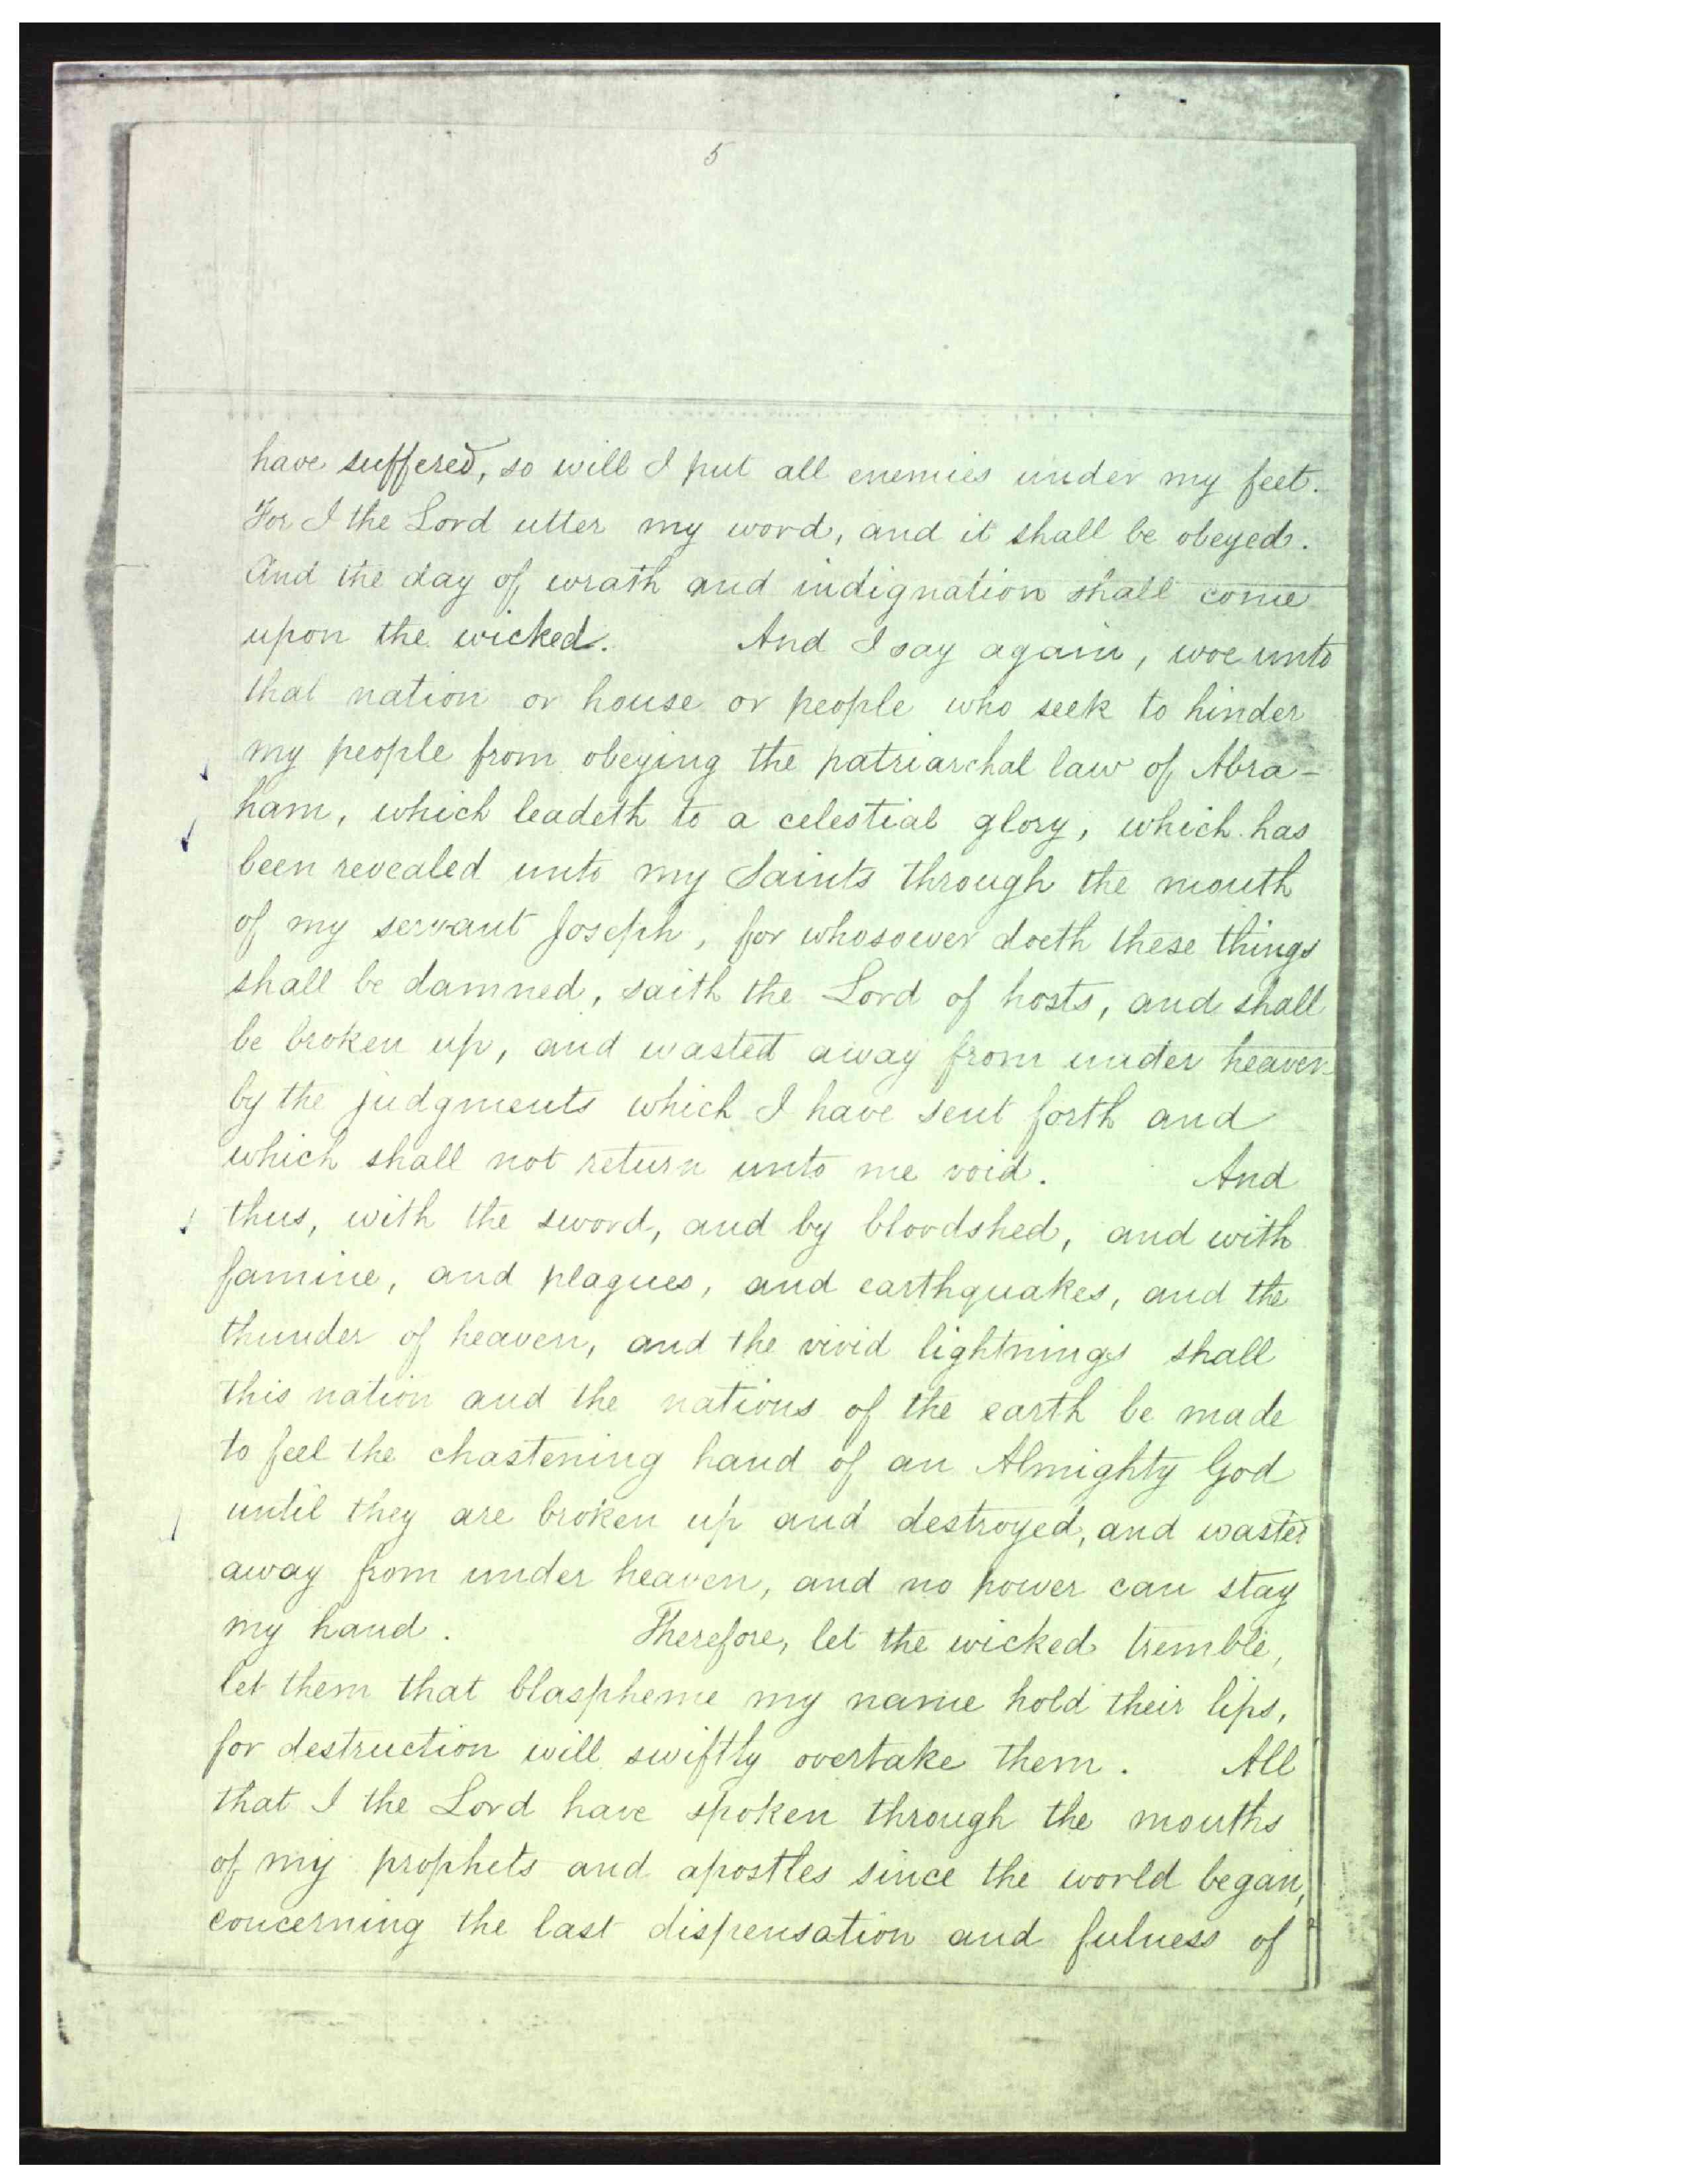 5
have suffered, so will I put all enemies under my feet.
For I the Lord utter my word, and it shall be obeyed.
And the day of wrath and indignation shall come
upon the wicked. And I say again, woe unto
that nation or house or people who seek to hinder
my people from obeying the patriarchal law of Abra-
ham, which leadeth to a celestial glory, which has
been revealed unto my Saints through the mouth
of my servant Joseph, for whosoever doeth these things
shall be damned, saith the Lord of hosts, and shall
be broken up, and wasted away from under heaven
by the judgments which I have sent forth and
which shall not return unto me void. And
thus, with the sword, and by bloodshed, and with
famine, and plagues, and earthquakes, and the
thunder of heaven, and the vivid lightnings shall
this nation and the nations of the earth be made
to feel the chastening hand of an Almighty God
until they are broken up and destroyed, and wasted
away from under heaven, and no power can stay
my hand. Therefore, let the wicked tremble,
let them that blaspheme my name hold their lips,
for destruction will swiftly overtake them. All
that I the Lord have spoken through the mouths
of my prophets and apostles since the world began,
concerning the last dispensation and fulness of